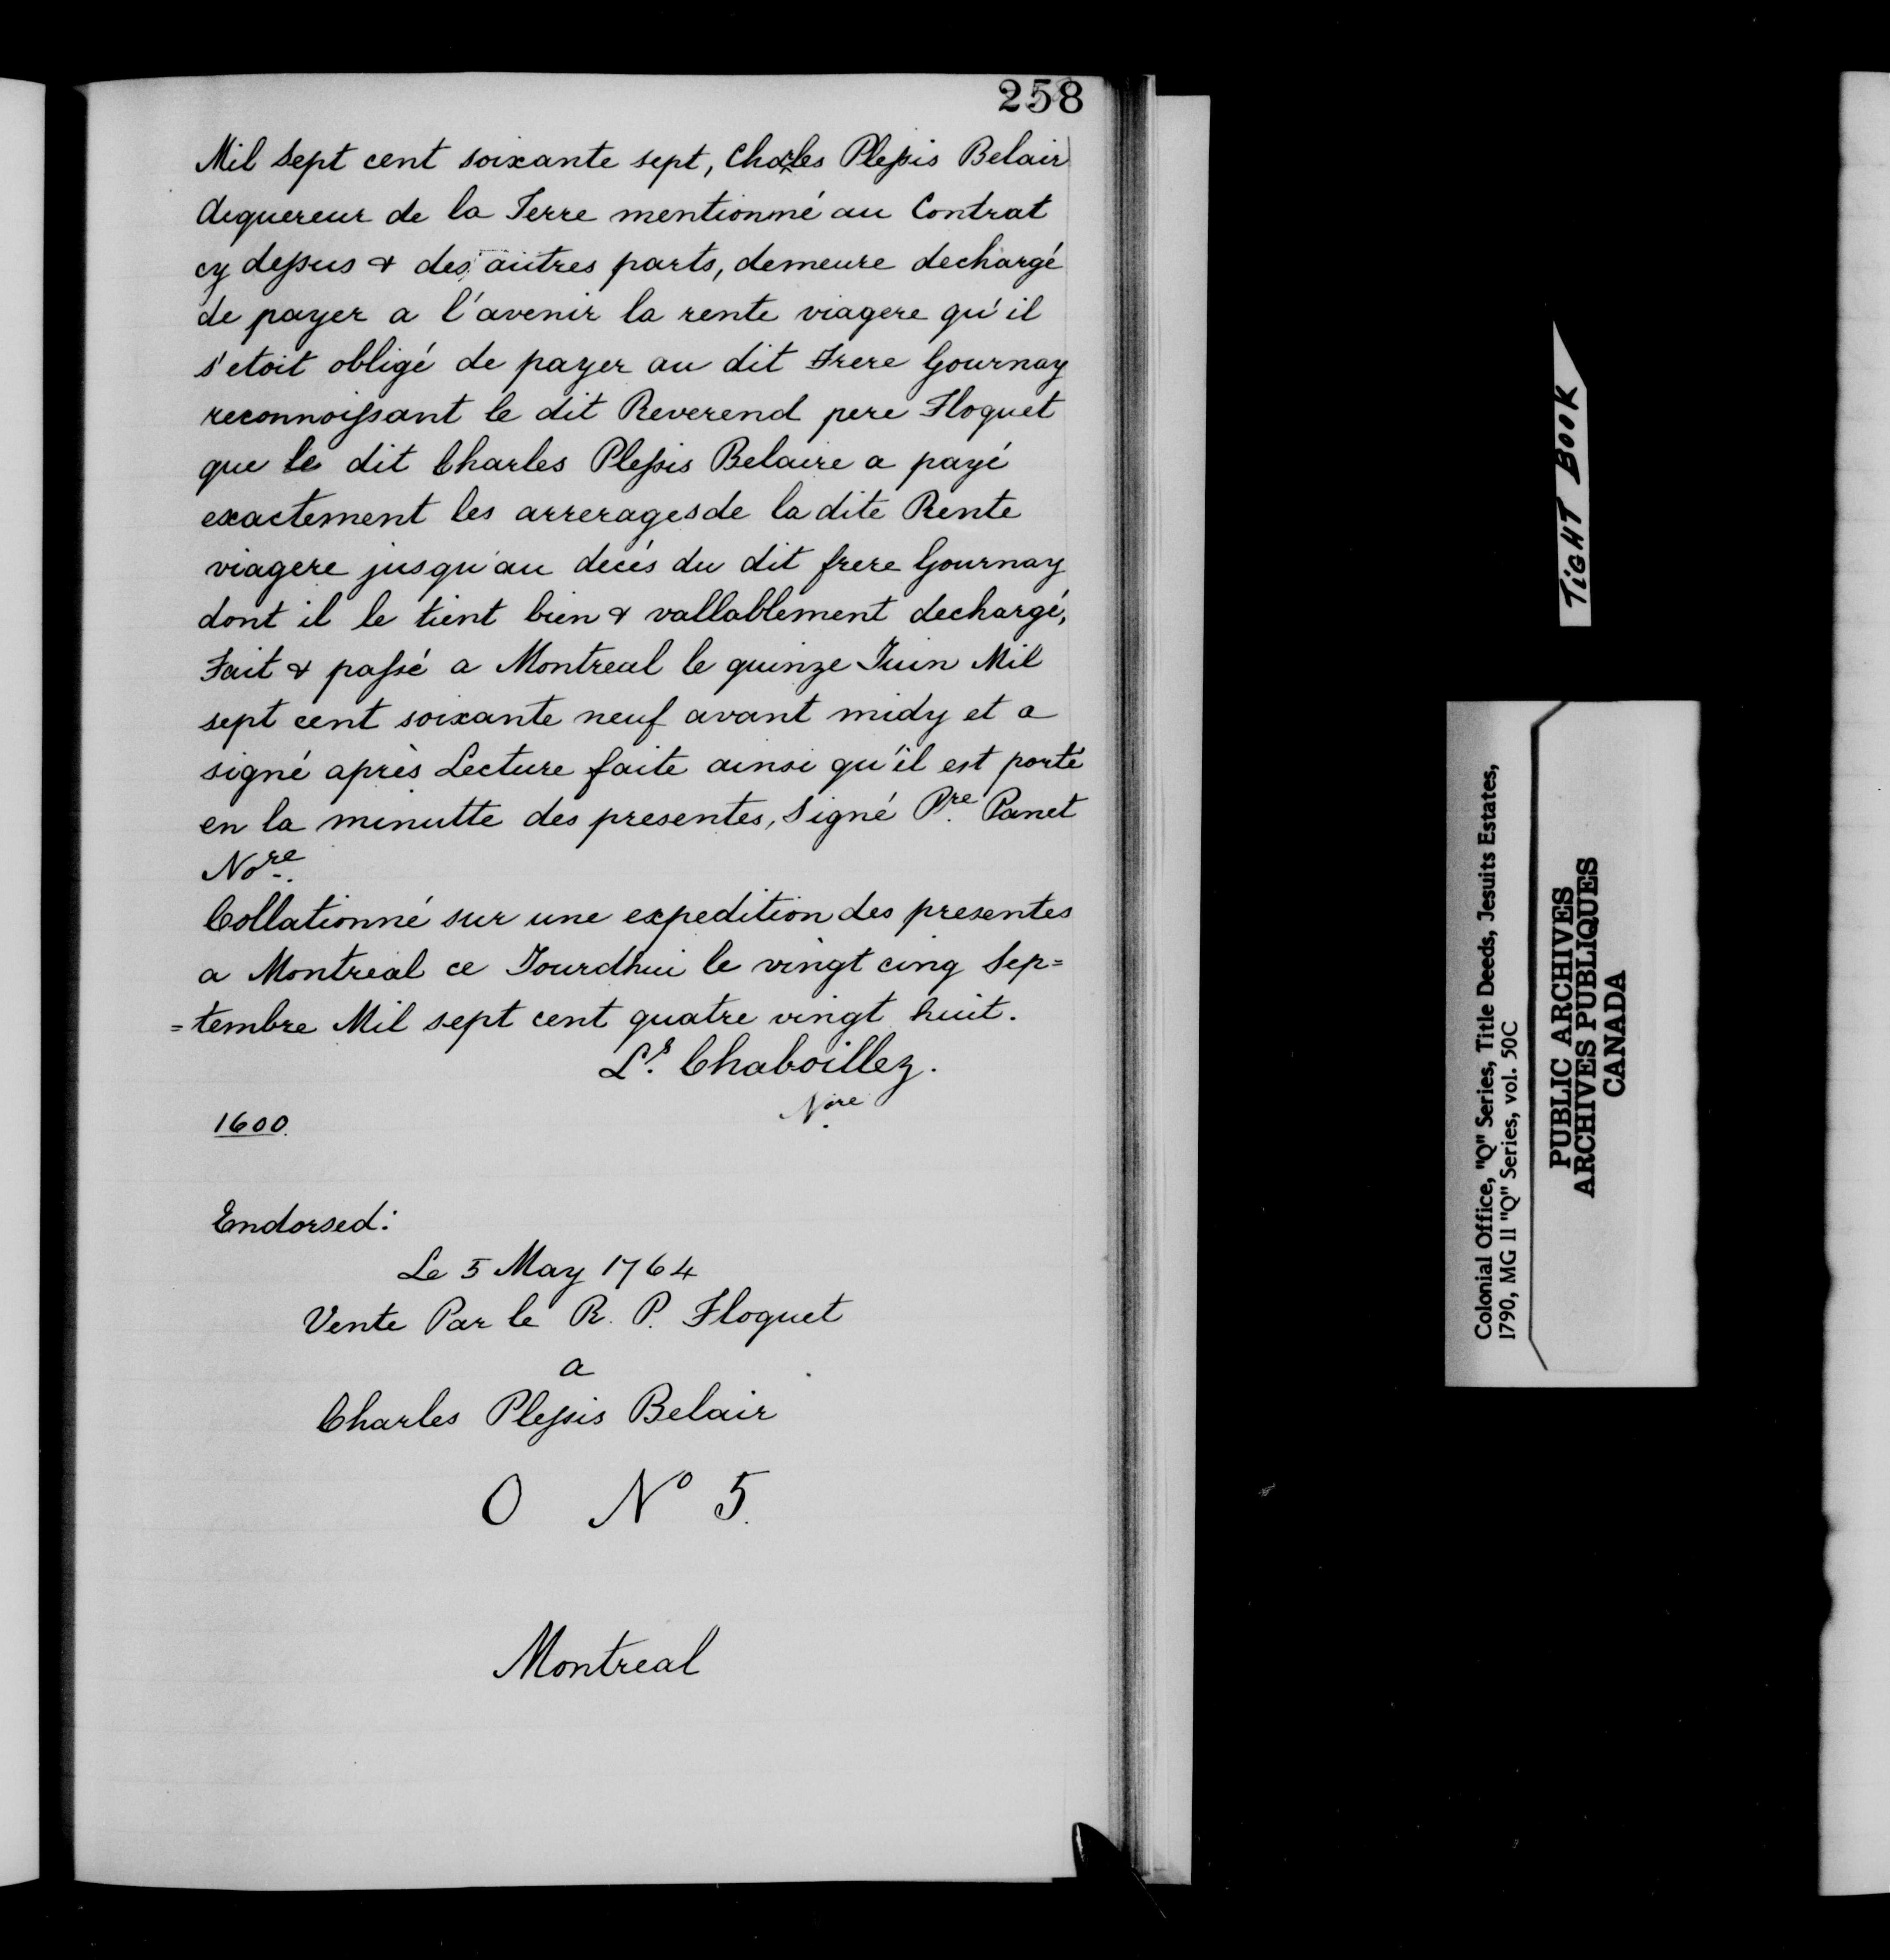 258
Mil sept cent soixante sept, Charles Plessis Belair
Acquereur de la Terre mentionné au Contrat
cy dessus & des autres parts, demeure dechargé
de payer a l'avenir la rente viagere qu'il
s'etoit obligé de payer au dit Frere Gournay
reconnoissant le dit Reverend pere Floquet
que le dit Charles Plessis Belaire a payé
exactement les arrerages de la dite Rente
viagere jusqu'au decés du dit frere Gournay
dont il le tient bien & vallablement dechargé,
Fait & passé a Montreal le quinze Juin Mil
sept cent soixante neuf avant midy et a
signé après Lecture faite ainsi qu'il est porté
en la minutte des presentes, Signé Pre. Panet
Nore.
Collationné sur une expedition des presentes
a Montreal ce Jourdhui le vingt cinq Sep=
=tembre Mil sept cent quatre vingt huit.
Ls. Chaboillez.
Nore
1600
Endorsed:
Le 5 May 1764
Vente Par le R. P. Floquet
a
Charles Plessis Belair
O No 5.
Montreal
TiGHT BOOK
Colonial Office, "Q" Series, Title Deeds, Jesuits Estates,
1790, MG 11 "Q" Series, vol. 50C
PUBLIC ARCHIVES
ARCHIVES PUBLIQUES
CANADA